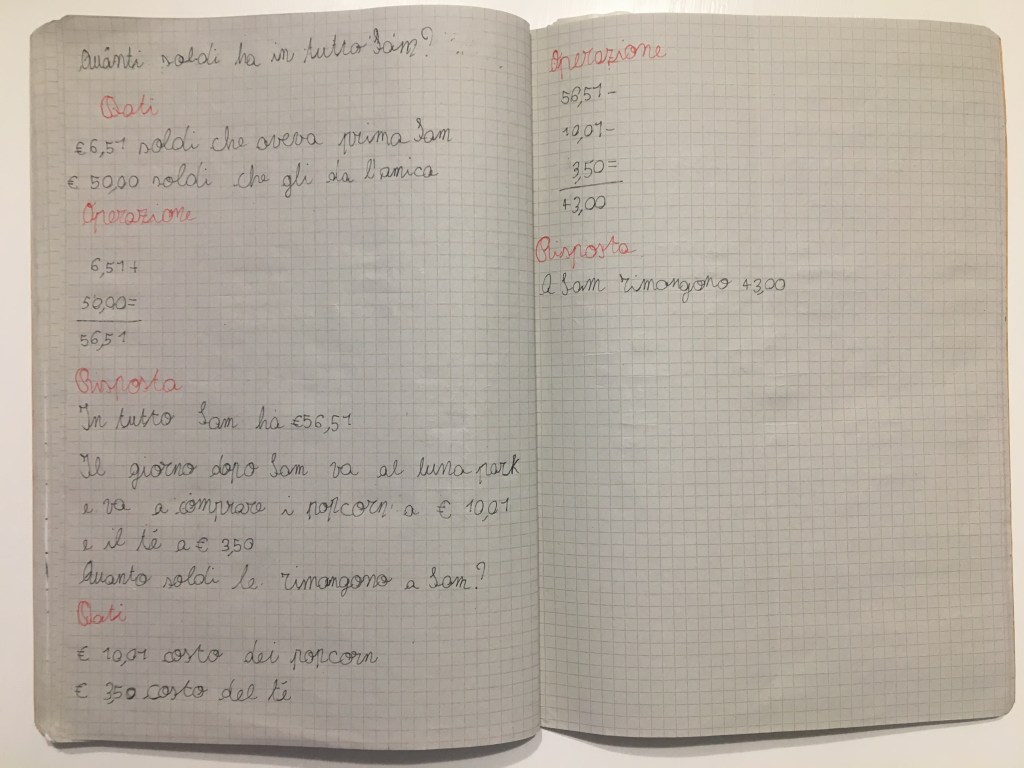 Quanti soldi ha in tutto Sam?
Dati
€6,51 soldi che aveva prima Sam
€ 50,00 soldi che gli da l'amica
Operazione
6,51+
50,00=
56,51
Risposta
In tutto Sam ha €56,51
Il giorno dopo Sam va al luna park
e va a comprare i popcorn a € 10,01
e il té a € 3,50
Quanto soldi le rimangono a Sam?
Dati
€ 10,01 costo dei popcorn
€ 3,50 costo del té
Operazione
56,51-
10,01-
3,50=
43,00
Risposta
A Sam rimangono 43,00